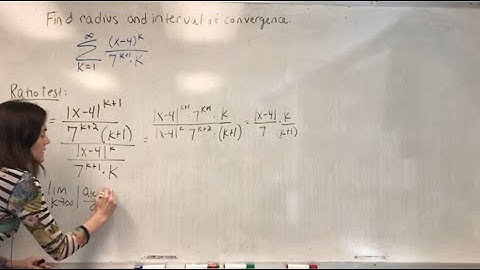 Find radius and interval of convergence.
∞
∑ (x-4)^k / 7^{k+1}·k
k=1
Ratio test:
= |x-4|^{k+1} / 7^{k+2}(k+1) / |x-4|^k / 7^{k+1}·k = |x-4|^{k+1} 7^{k+1}·k / |x-4|^k 7^{k+2}·(k+1) = |x-4| / 7 · k / (k+1)
lim k→∞ |